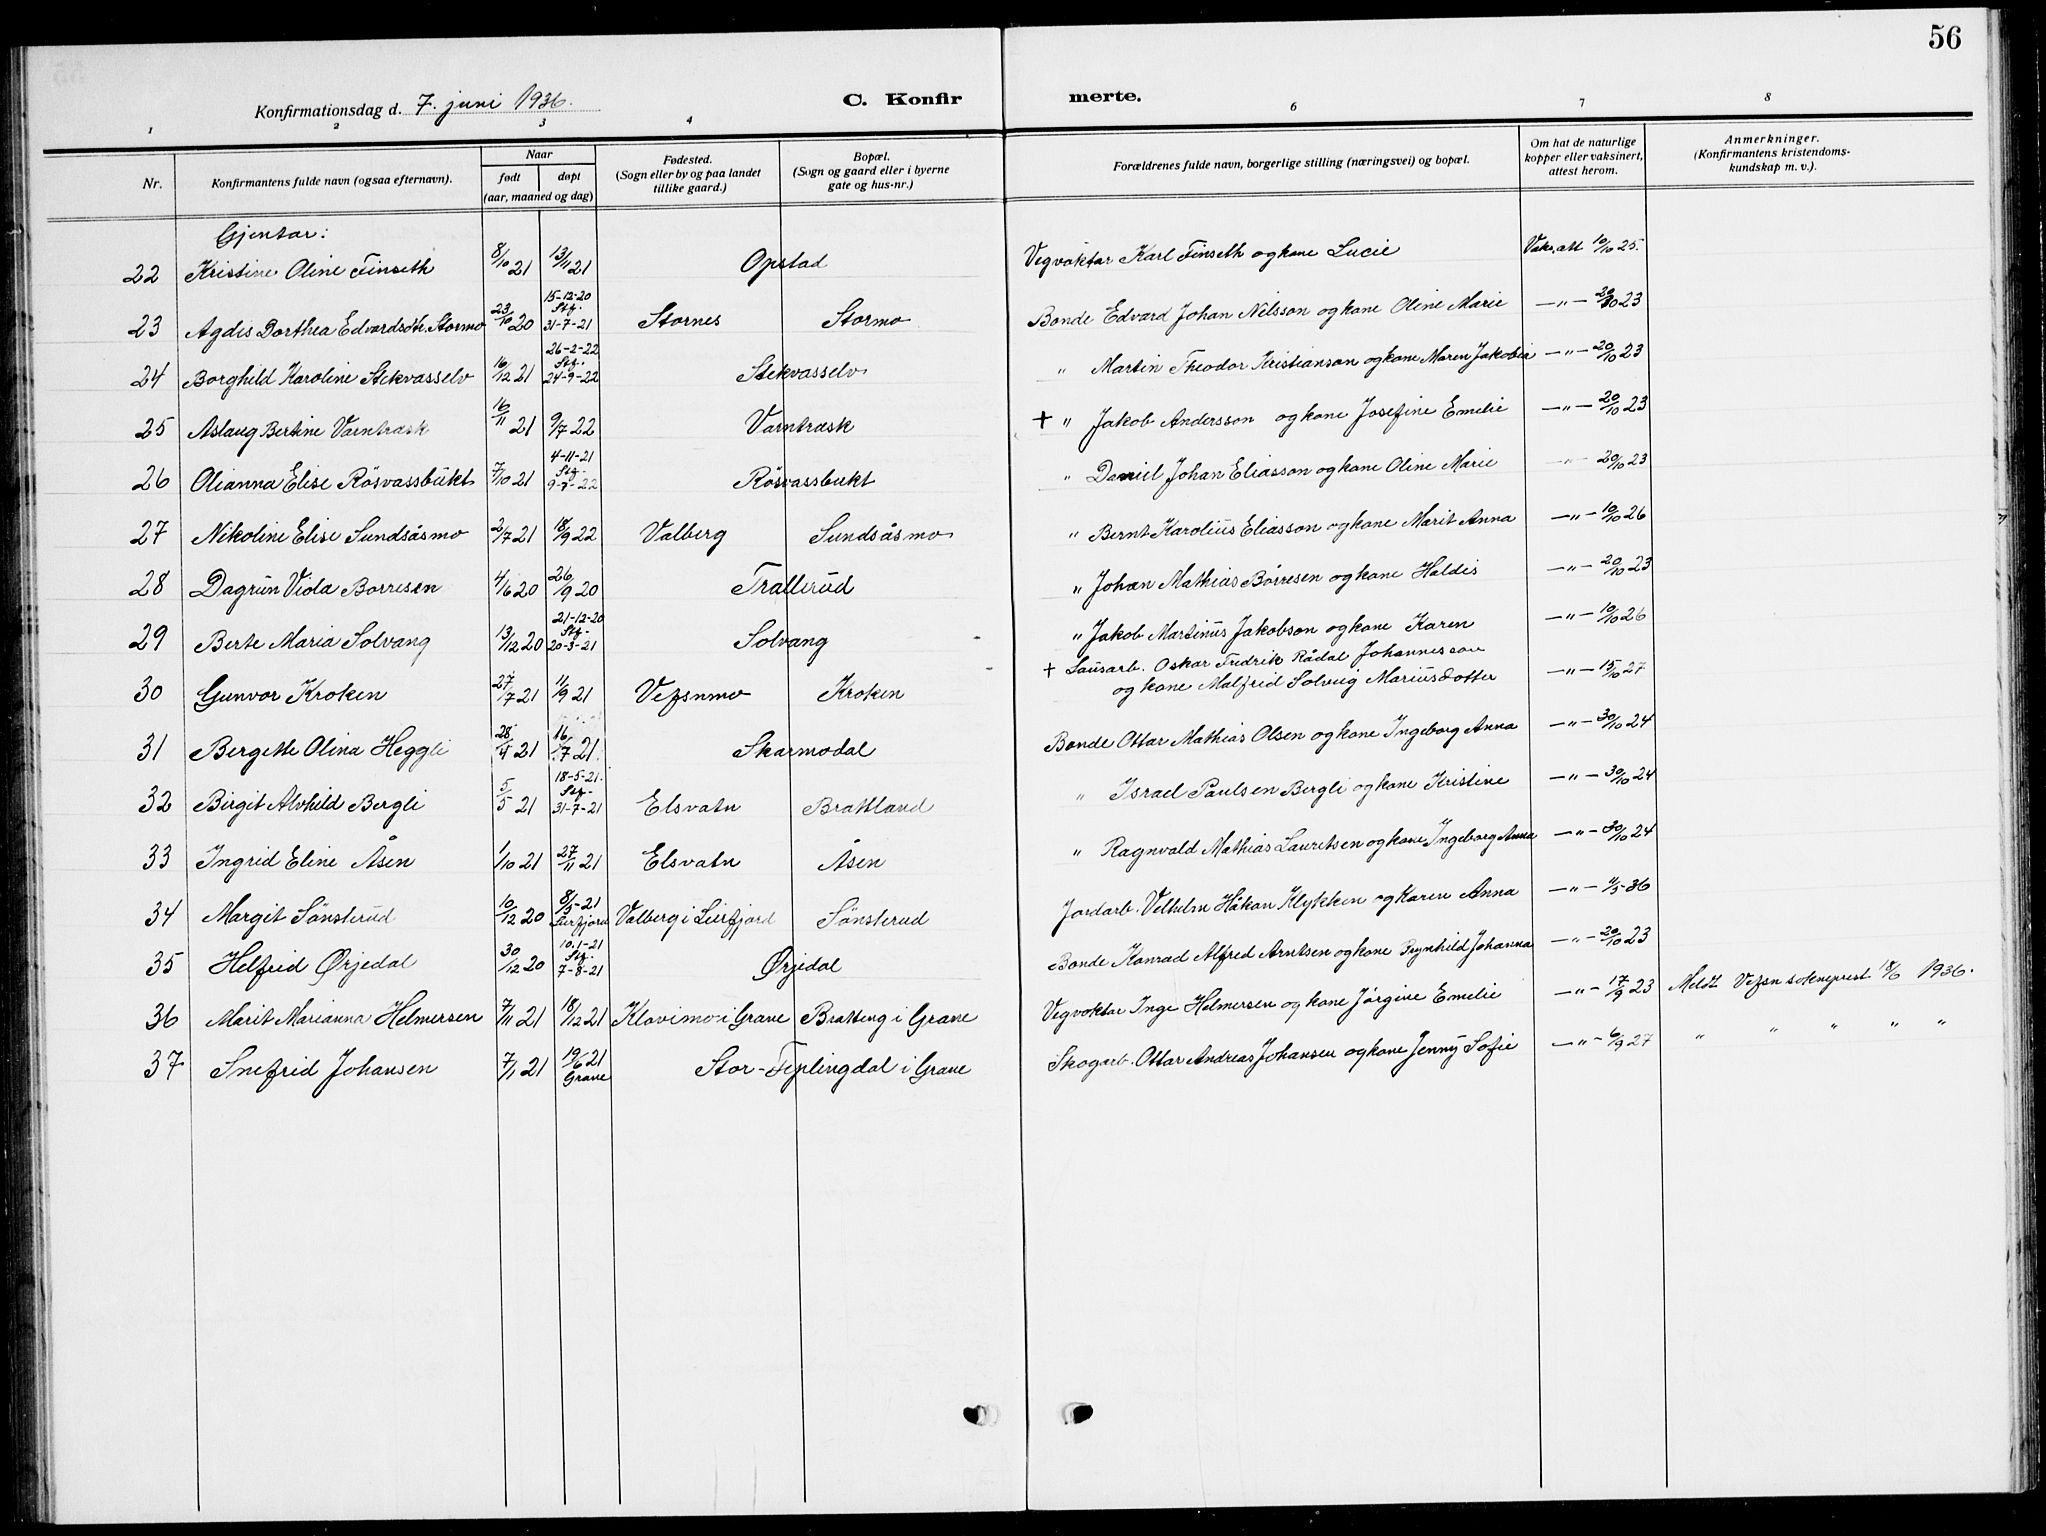 56
Konfirmationsdag d. 7. juni 1936. C. Konfir merte.
1 2 3 4 6 7 8
Nr. Konfirmantens fulde navn (ogsaa efternavn). Naar født døpt (aar, maaned og dag) Fødested. (Sogn eller by og paa landet tillike gaard.) Bopæl. (Sogn og gaard eller i byerne gate og hus-nr.) Forældrenes fulde navn, borgerlige stilling (næringsvei) og bopæl. Om hat de naturlige kopper eller vaksinert, attest herom. Anmerkninger. (Konfirmantens kristendoms- kundskap m. v.).
Gjentor:
22 Kristine Oline Finseth 8/10 21 13/11 21 Opstad Vegvoktar Karl Finseth og kone Lucie Vaks. att 10/10 25.
23 Agdis Dorthea Edvardsdtr. Stormo 23/10 20 15-12-20 Stf. 31-7-21 Stornes Stormo Bonde Edvard Johan Nilsson og kone Oline Marie —"— 20/10 23
24 Borghild Karoline Stekvasselv 16/12 21 26-2-22 Stf. 24-9-22 Stekvasselv " Martin Theodor Kristianson og kone Maren Jakobia —"— 20/10 23
25 Aslaug Bertine Varntræsk 16/11 21 9/7 22 Varntræsk + " Jakob Andersson og kone Josefine Emelie —"— 20/10 23
26 Olianna Elise Rösvassbukt 7/10 21 4-11-21 Stf. 9-7-22 Rösvassbukt " Daniel Johan Eliasson og kone Oline Marie —"— 20/10 23
27 Nikoline Elise Sundsåsmo 2/7 21 18/9 22 Valberg Sundsåsmo " Bernt Karolius Eliasson og kone Marit Anna —"— 10/10 26
28 Dagrun Viola Borresen 4/6 20 26/9 20 Trallerud " Johan Mathias Börresen og kone Haldis —"— 20/10 23
29 Berte Maria Solvang 13/12 20 21-12-20 Stf. 20-3-21 Solvang " Jakob Martinus Jakobson og kone Karen —"— 10/10 26
30 Gunvor Kroken 27/7 21 11/9 21 Vefsnmo Kroken + Lausarb. Oskar Fredrik Rådal Johannesson og kone Malfrid Solveig Mariusdotter —"— 15/10 27
31 Bergette Olina Heggli 28/4 21 16/7 21 Skarmodal Bonde Ottar Mathias Olsen og kone Ingeborg Anna —"— 30/10 24
32 Birgit Alvhild Bergli 5/5 21 18-5-21. Stf. 31-7-21 Elsvatn Brattland " Israel Paulsen Bergli og kone Kristine —"— 30/10 24
33 Ingrid Eline Åsen 1/10 21 27/11 21 Elsvatn Åsen " Ragnvald Mathias Lauritsen og kone Ingeborg Anna —"— 30/10 24
34 Margit Sönsterud 10/12 20 8/5-21 Leirfjord Valberg i Leirfjord Sönsterud Jordarb. Vilhelm Håkon Klykken og Karen Anna —"— 11/5-36
35 Helfrid Ørjedal 30/12 20 10.1-21 Stf. 7-8-21 Ørjedal Bonde Konrad Alfred Arntsen og kone Brynhild Johanna —"— 20/10 23
36 Marit Marianna Helmersen 7/11 21 18/12 21 Klovimo i Grane Bratteng i Grane Vegvoktar Inge Helmersen og kone Jörgine Emelie —"— 17/9 23 Meldt Vefsn sokneprest 18/6 1936.
37 Snefrid Johansen 7/1 21 19/6 21 Grane Stor-Fiplingdal i Grane Skogarb. Ottar Andreas Johansen og kone Jenny Sofie —"— 6/9 27 " " " " "